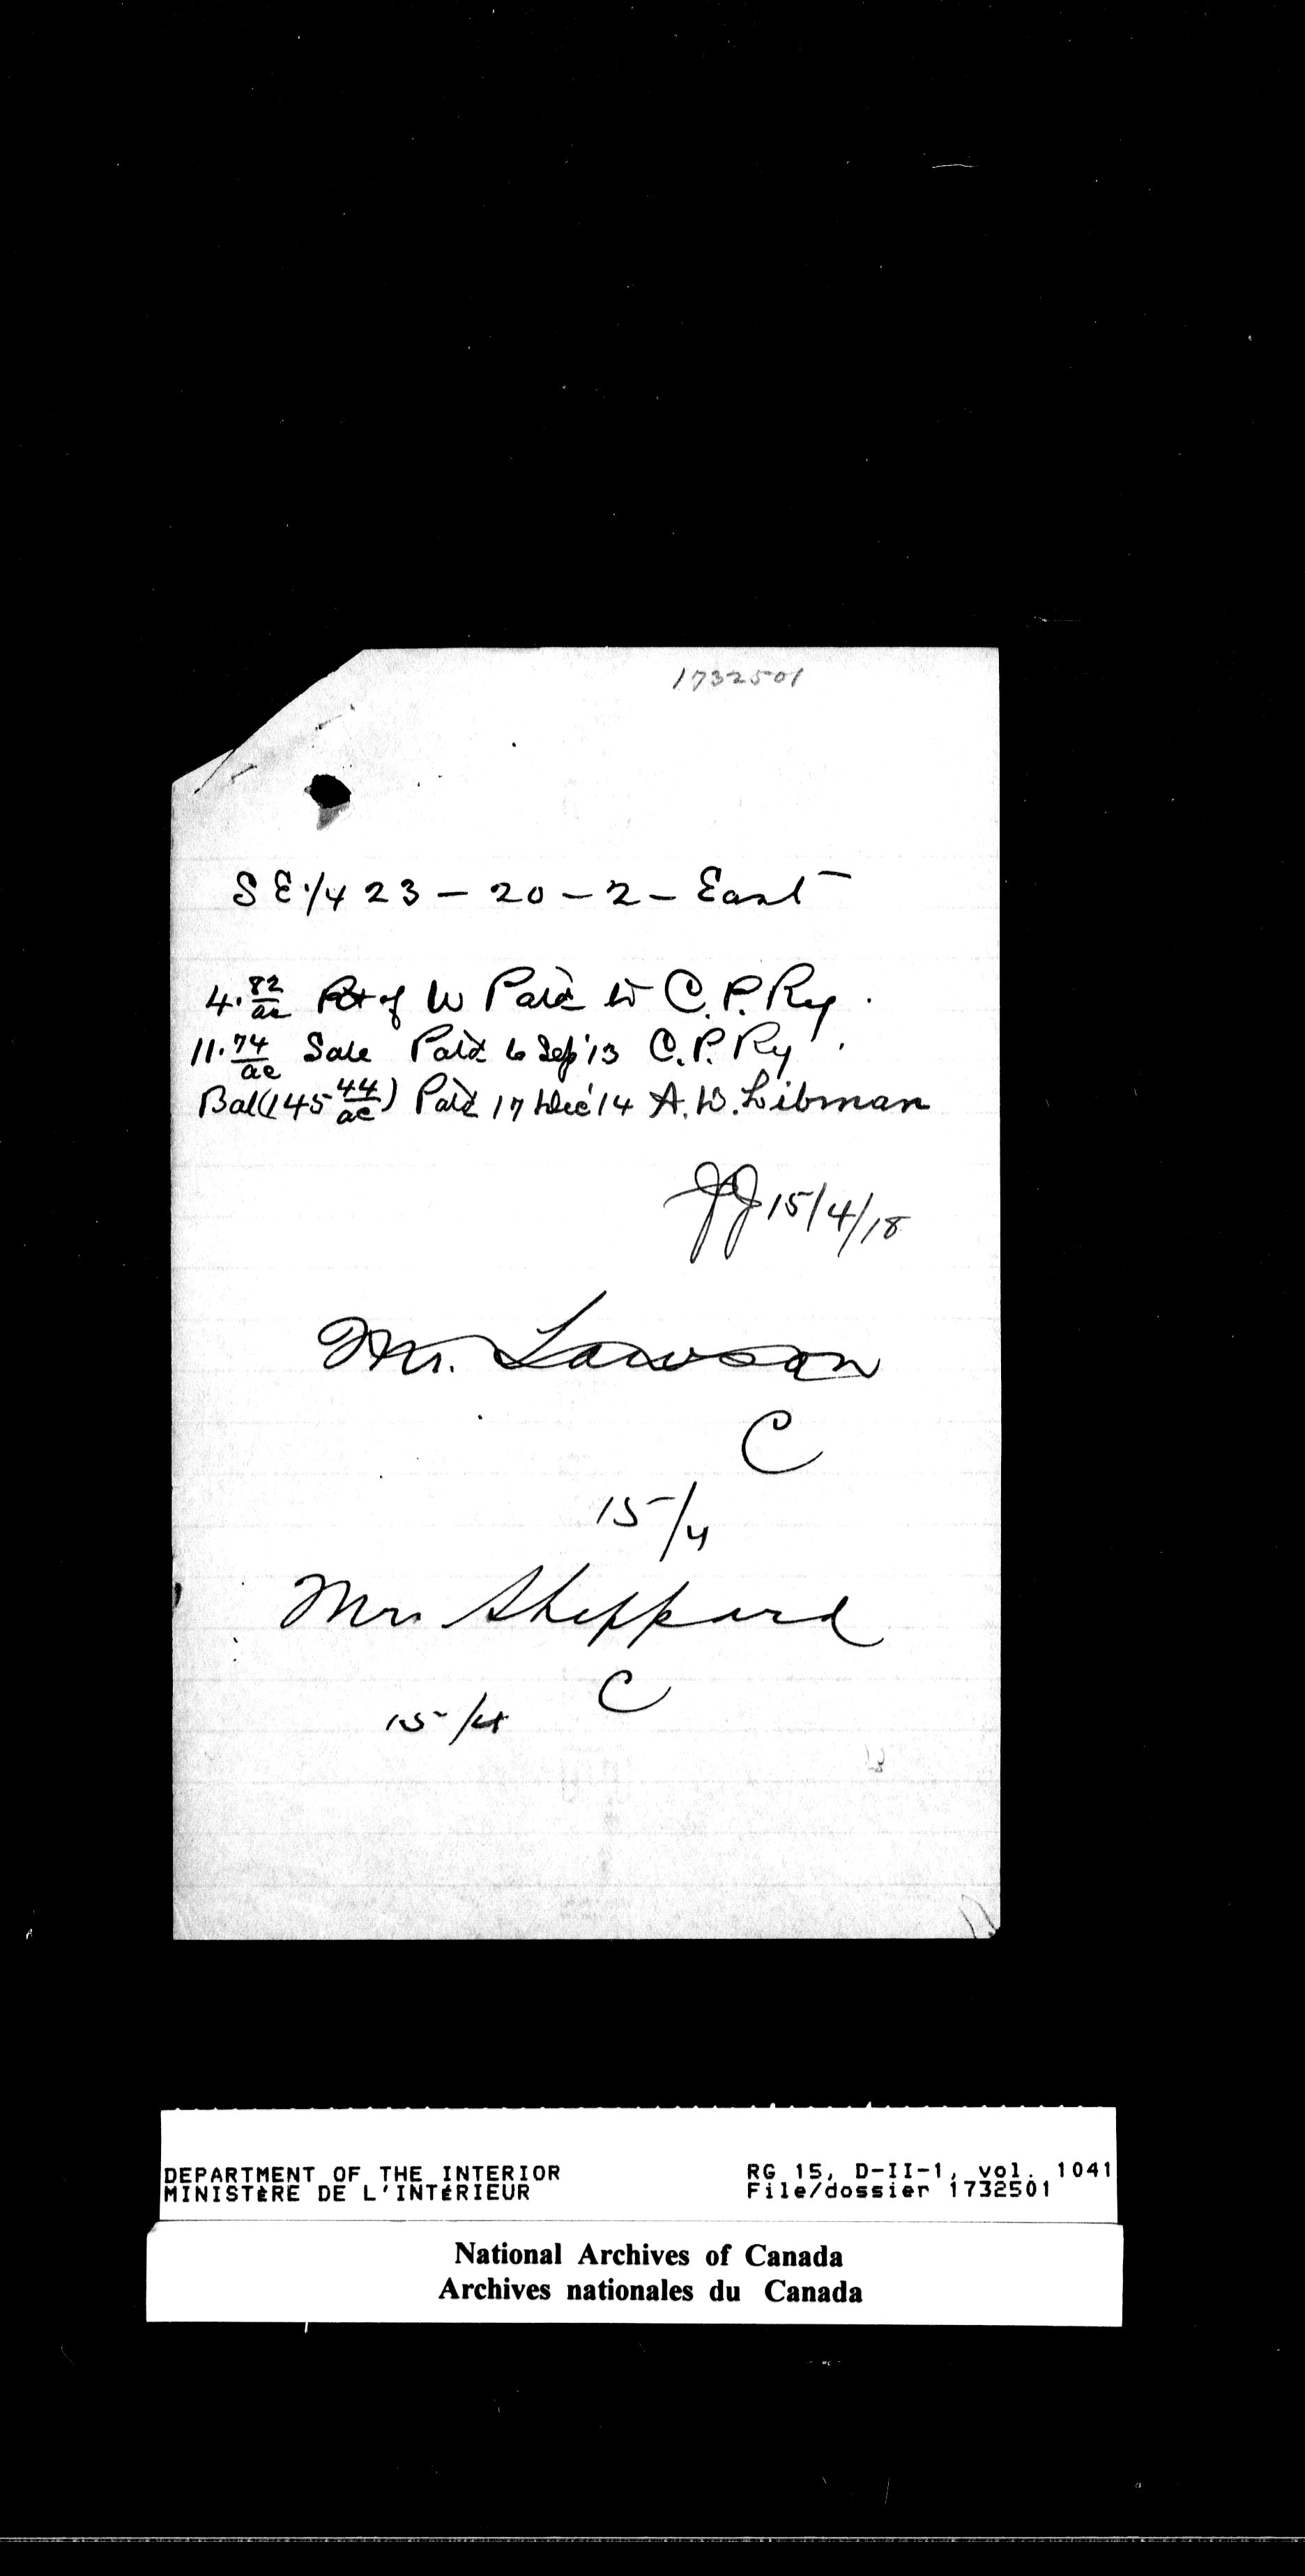 1732501
S E 1/4 23 – 20 – 2 – East
4.82/ac Rt of W Pat'd to C. P. Ry.
11.74/ac Sale Pat'd 6 Sep '13 C. P. Ry.
Bal (145 44/ac) Pat'd 17 Dec '14 A. W. Libman
JJ 15/4/18
Mr. Lawson
C
15/4
Mr Sheppard
C
15/4
DEPARTMENT OF THE INTERIOR
MINISTÈRE DE L'INTÉRIEUR
RG 15, D-II-1, vol. 1041
File/dossier 1732501
National Archives of Canada
Archives nationales du Canada